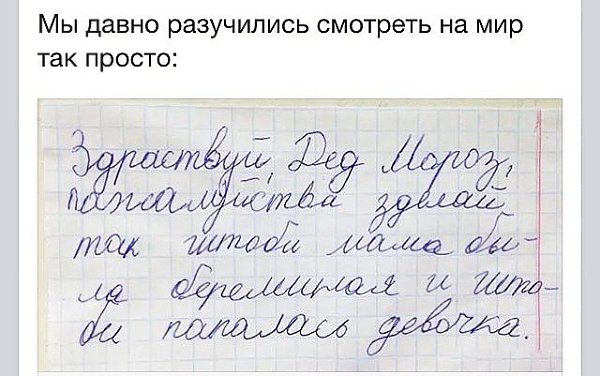 Мы давно разучились смотреть на мир
так просто:
Здраствуй, Дед Мороз,
пажалуйства зделай
так штоби мама бы-
ла береминая и што-
би папалась девочка.